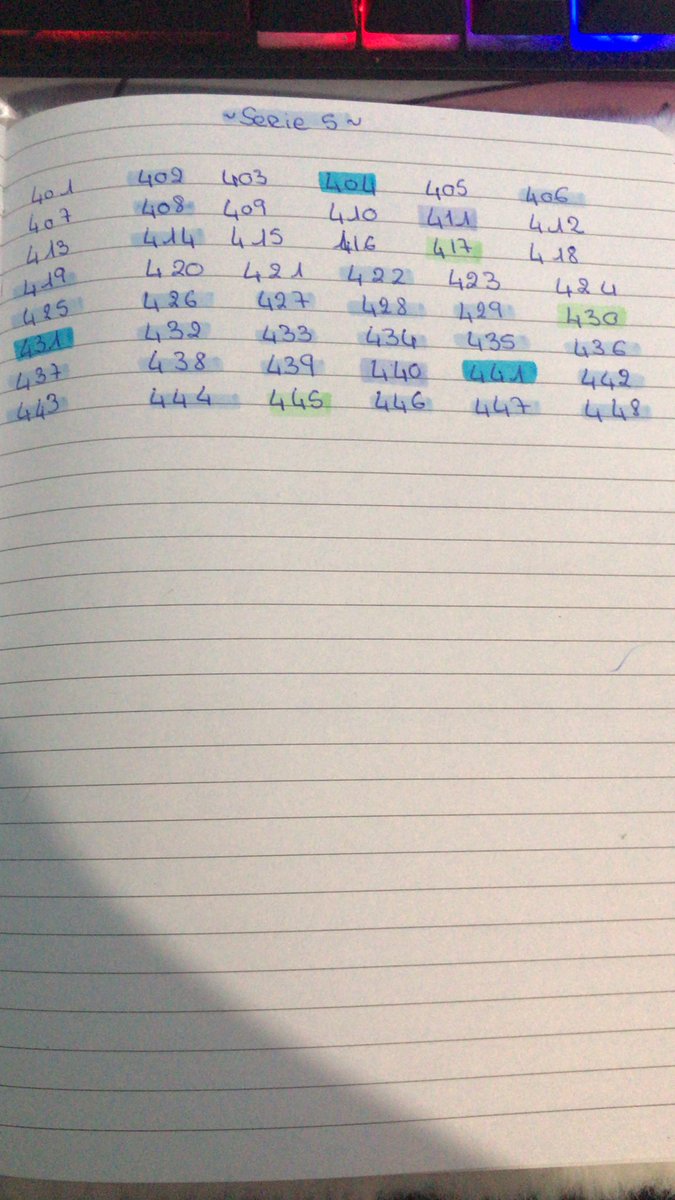 ~Serie 5~
401 402 403 404 405 406
407 408 409 410 411 412
413 414 415 416 417 418
419 420 421 422 423 424
425 426 427 428 429 430
431 432 433 434 435 436
437 438 439 440 441 442
443 444 445 446 447 448